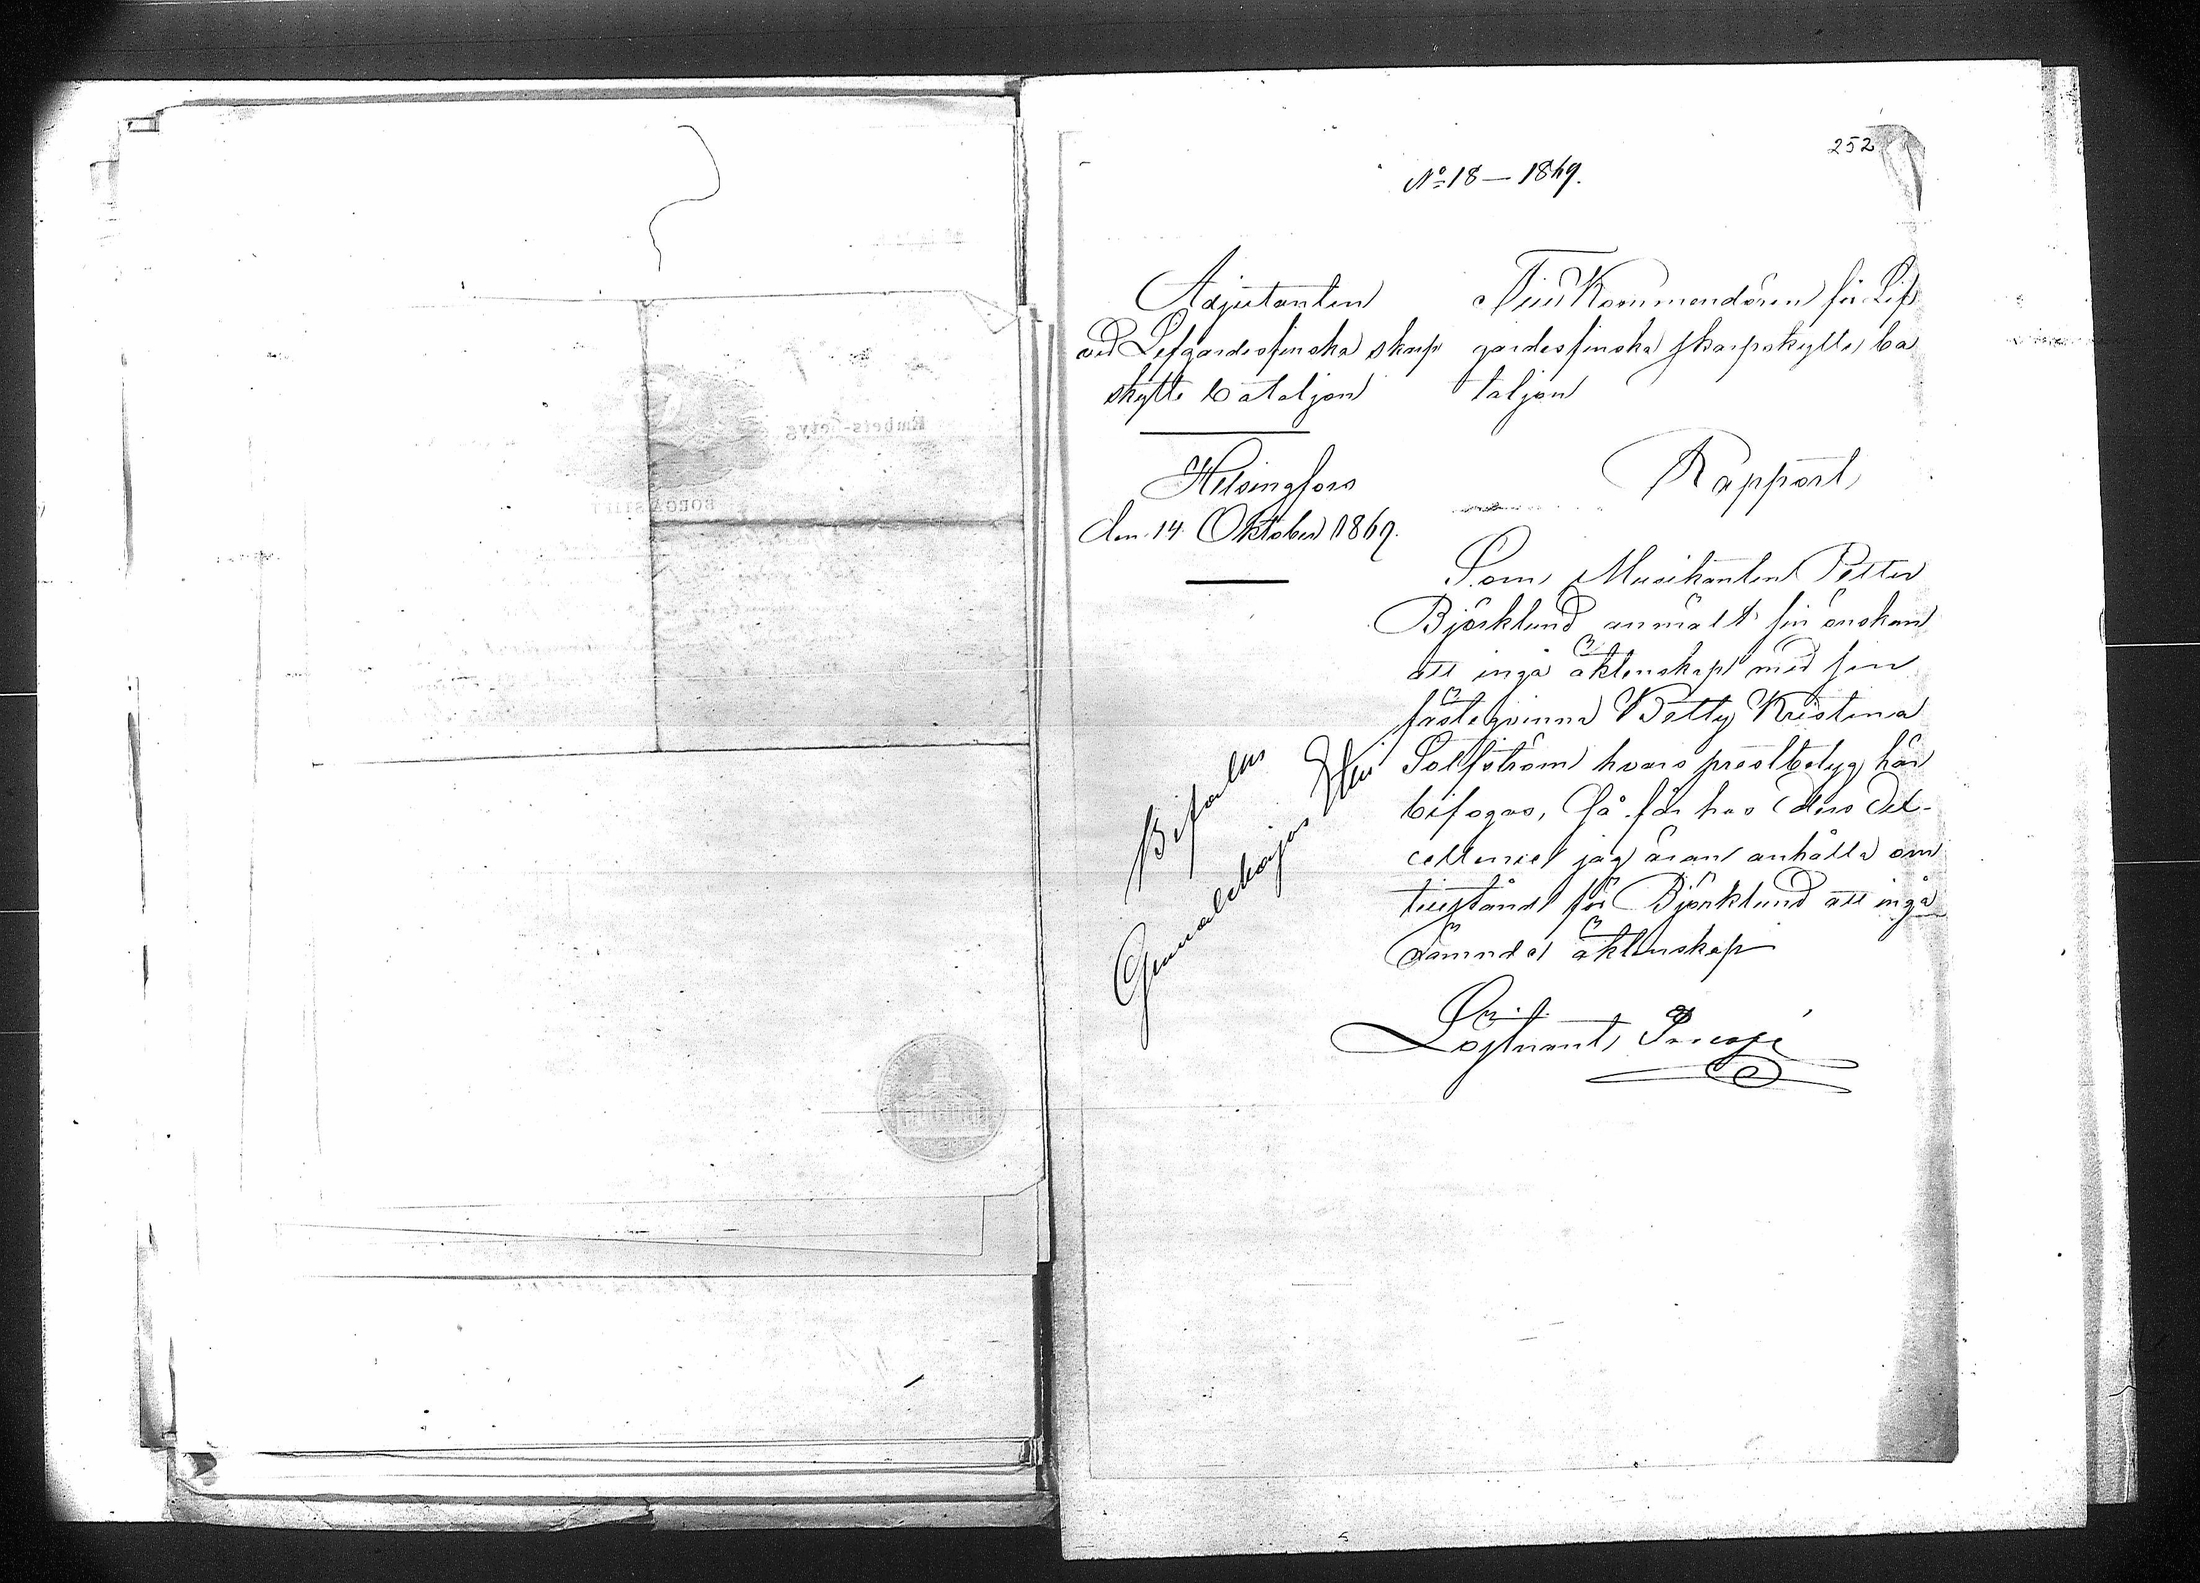 252
No 18 – 1869.
Adjutanten
vid Lifgardesfinska skarp
skytte bataljon
Helsingfors
den 14 Oktober 1869.
Till Kommendören för Lif
gardesfinska skarpskytte ba
taljon
Rapport
Som Musikanten Petter
Björklund anmält sin önskan
att ingå äktenskap med sin
fästeqvinna Betty Kristina
Solfström hvars prestbetyg här
bifogas, så får hos Ders Ex-
cellence jag äran anhålla om
tillstånd för Björklund att ingå
nämnde äktenskap
Löjtnant
Bifalles
Generalmajor
Embets-Betyg
BORGÅ STIFT